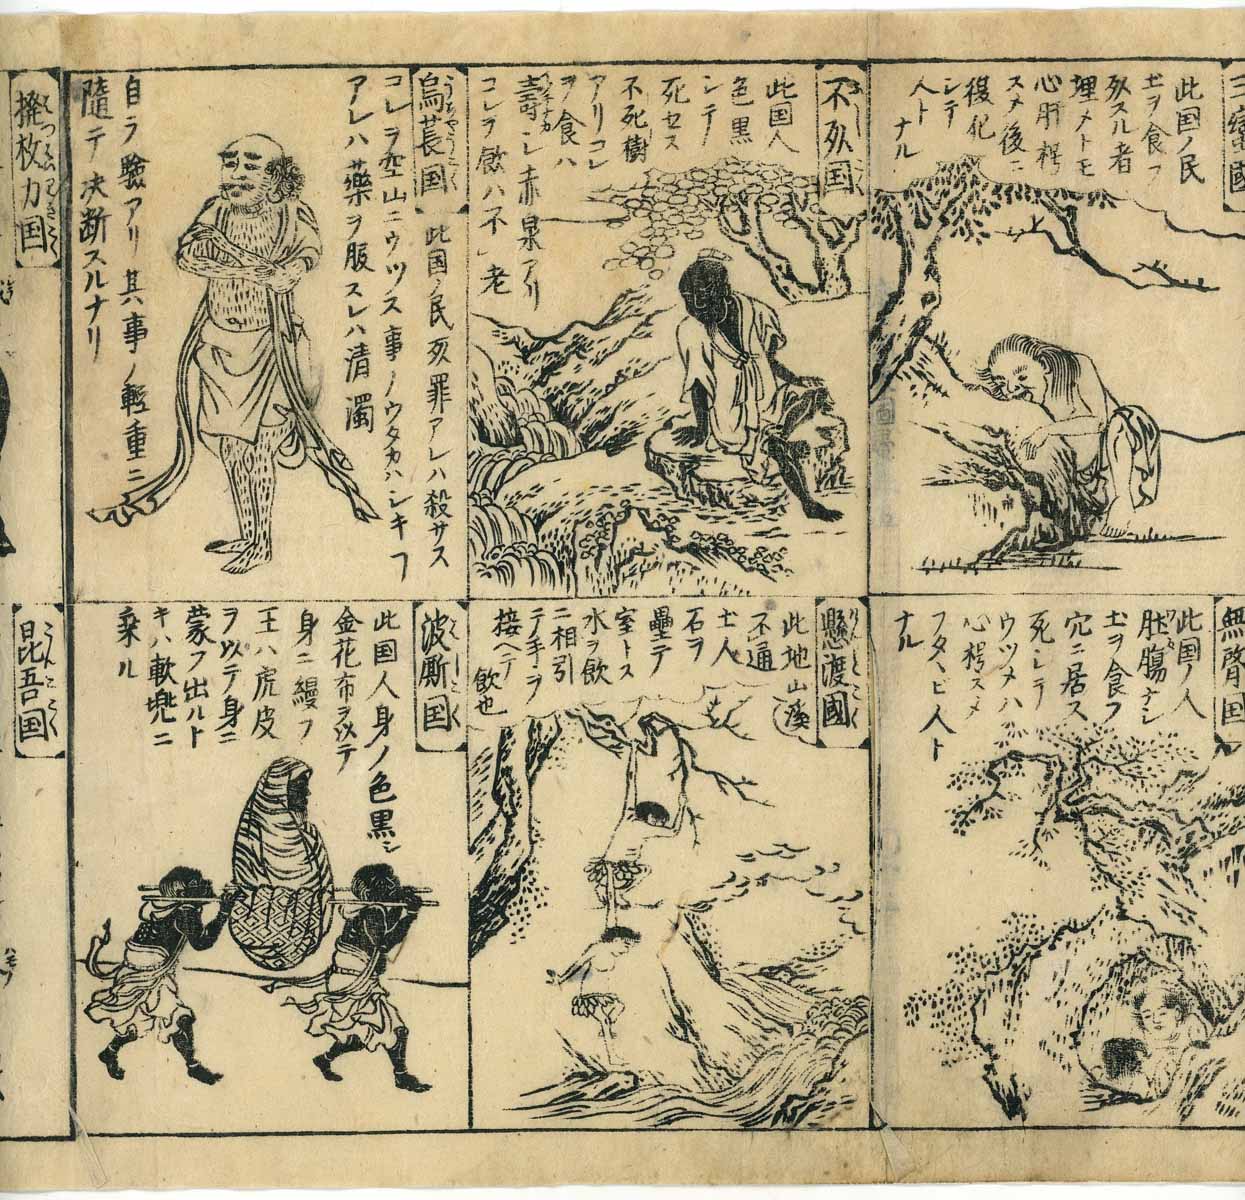 三蠻國
此国ノ民
土ヲ食フ
死スル者
埋メトモ
心肝朽
スメ後ニ
復化
シテ
人ト
ナル
不死国
此国人
色黒
シテ
死セス
不死樹
アリコレ
ヲ食ハ
壽シ赤泉アリ
コレヲ飲ハ不老
烏萇国
此国ノ民死罪アレハ殺サス
コレヲ空山ニウツス事ノウタカハシキフ
アレハ藥ヲ服スレハ清濁
自ラ驗アリ其事ノ輕重ニ
隨テ决断スルナリ
撥枚力国
無䏿国
此国ノ人
肚腸ナシ
土ヲ食フ
穴ニ居ス
死シテ
ウツメハ
心朽スメ
フタヽビ人ト
ナル
懸渡國
此地山溪
不通
土人
石ヲ
壘テ
室トス
水ヲ飲
ニ相引
テ手ヲ
接ヘテ
飲也
波斯国
此国人身ノ色黒シ
金花布ヲ以テ
身ニ縵フ
王ハ虎皮
ヲ以テ身ニ
蒙フ出ルト
キハ軟兜ニ
乗ル
昆吾国